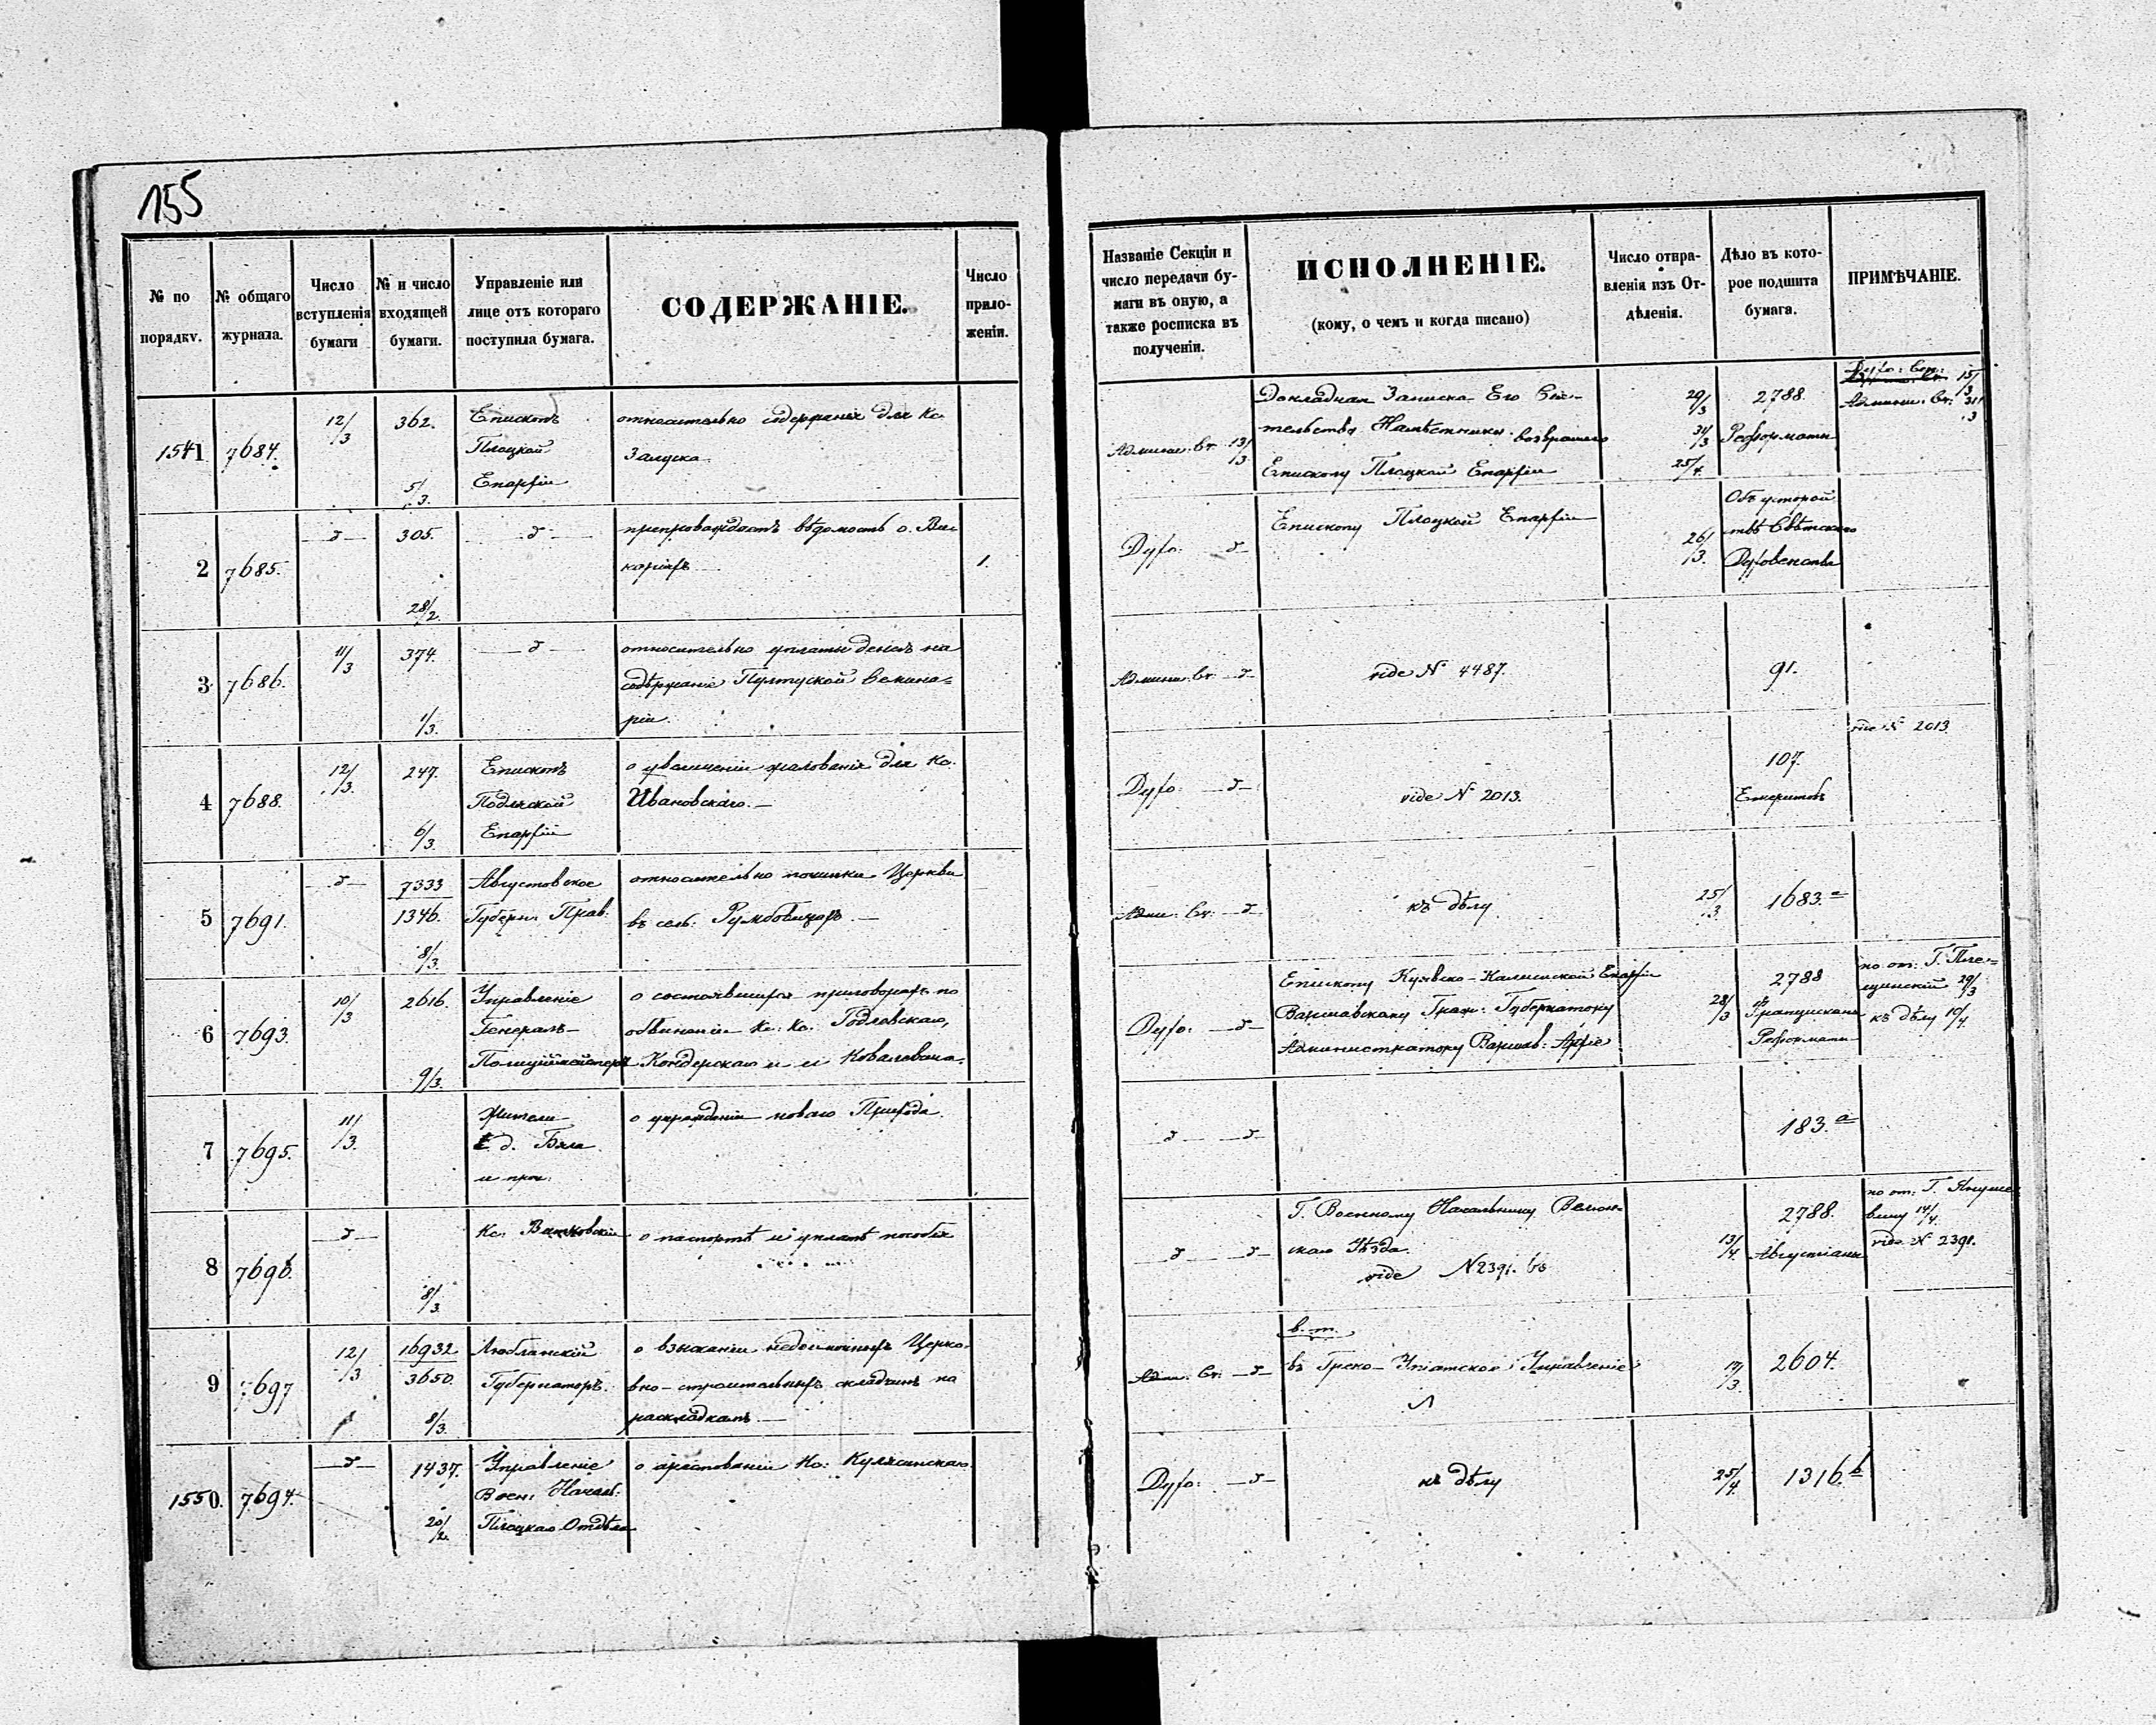 155
№ по порядку.
№ общаго журнала.
Число вступленія бумаги
№ и число входящей бумаги.
Управленіе или лице отъ котораго поступила бумага.
СОДЕРЖАНІЕ.
Число приложеніи.
Названіе Секціи и число передачи бумаги въ оную, а также росписка въ полученіи.
ИСПОЛНЕНІЕ.
(кому, о чемъ и когда писано)
Число отправленія изъ Отдѣленія.
Дѣло въ которое подшита бумага.
ПРИМѢЧАНІЕ.
1541
7684.
12/3
362.
5/3.
Епископъ
Плоцкой
Епархіи
относительно содержанія для Кс.
Залуска
13/3
Докладная Записка Его Сія-
тельства Намѣстника возвращено
Епискому Плоцкой Епархіи
29/3
31/3
25/4.
2788.
Реформаты
15/3
31/3
2
7685.
305.
28/2.
препровождаетъ вѣдомость о Ви-
каріяхъ
1.
Духо:
Епископу Плоцкой Епархіи
26/3.
Объ устрой
ствѣ Свѣтскаго
Духовенства
3
7686.
11/3
374.
1/3.
относительно уплаты денегъ на
содержаніе Пултуской Семина=
ріи.
vide N 4487.
91.
4
7688.
12/3.
247.
6/3.
Епископъ
Подляской
Епархіи
о увеличеніи жалованія для Кс.
Ивановскаго.
Духо:
vide N 2013.
107.
Емеритовъ
vide N 2013
5
7691.
7333
1346.
8/3.
Августовское
Губерн. Прав.
относительно починки Церкви
въ сел:
къ дѣлу
25/3.
1683.а
6
7693.
10/3
2616.
9/3.
Управленіе
Генералъ-
Полицiймейстера
о состоявшихся приговорахъ по
обвиненіи Кс: Кс: Годлевскаго,
Кондерскаго и
Духо:
Епископу Куявско-Калишской Епархіи
Варшавскому Граж: Губернатору
Администратору Варшав: Архіе
28/3
2788
Францискане
Реформаты
по от: Г. Пле-
щинскій 29/3
къ дѣлу 10/4
7
7695.
11/3.
Жители
д. Бяла
и проч.
о учрежденіи новаго Прихода.
183.а
8
7696.
8/3.
о паспортѣ и уплатѣ пособія
Г. Военному Начальнику Велюн-
скаго Уѣзда.
vide N 2391. 65
13/4.
2788.
Августіаны
14/4.
vide N 2391.
9
7697
12/3
16932
3650.
8/3.
Люблинскій
Губернаторъ.
о взысканіи недоимочныхъ Церко-
вно-строительныхъ складокъ по
раскладкамъ
в. т.
въ Греко-Уніатское Управленіе
17/3.
2604.
1550.
7694.
1437.
20/2.
Управленіе
Воен: Начал:
Плоцкаго Отдѣла
о арестованіи Кс:
Духо:
къ дѣлу
25/4.
1316.b